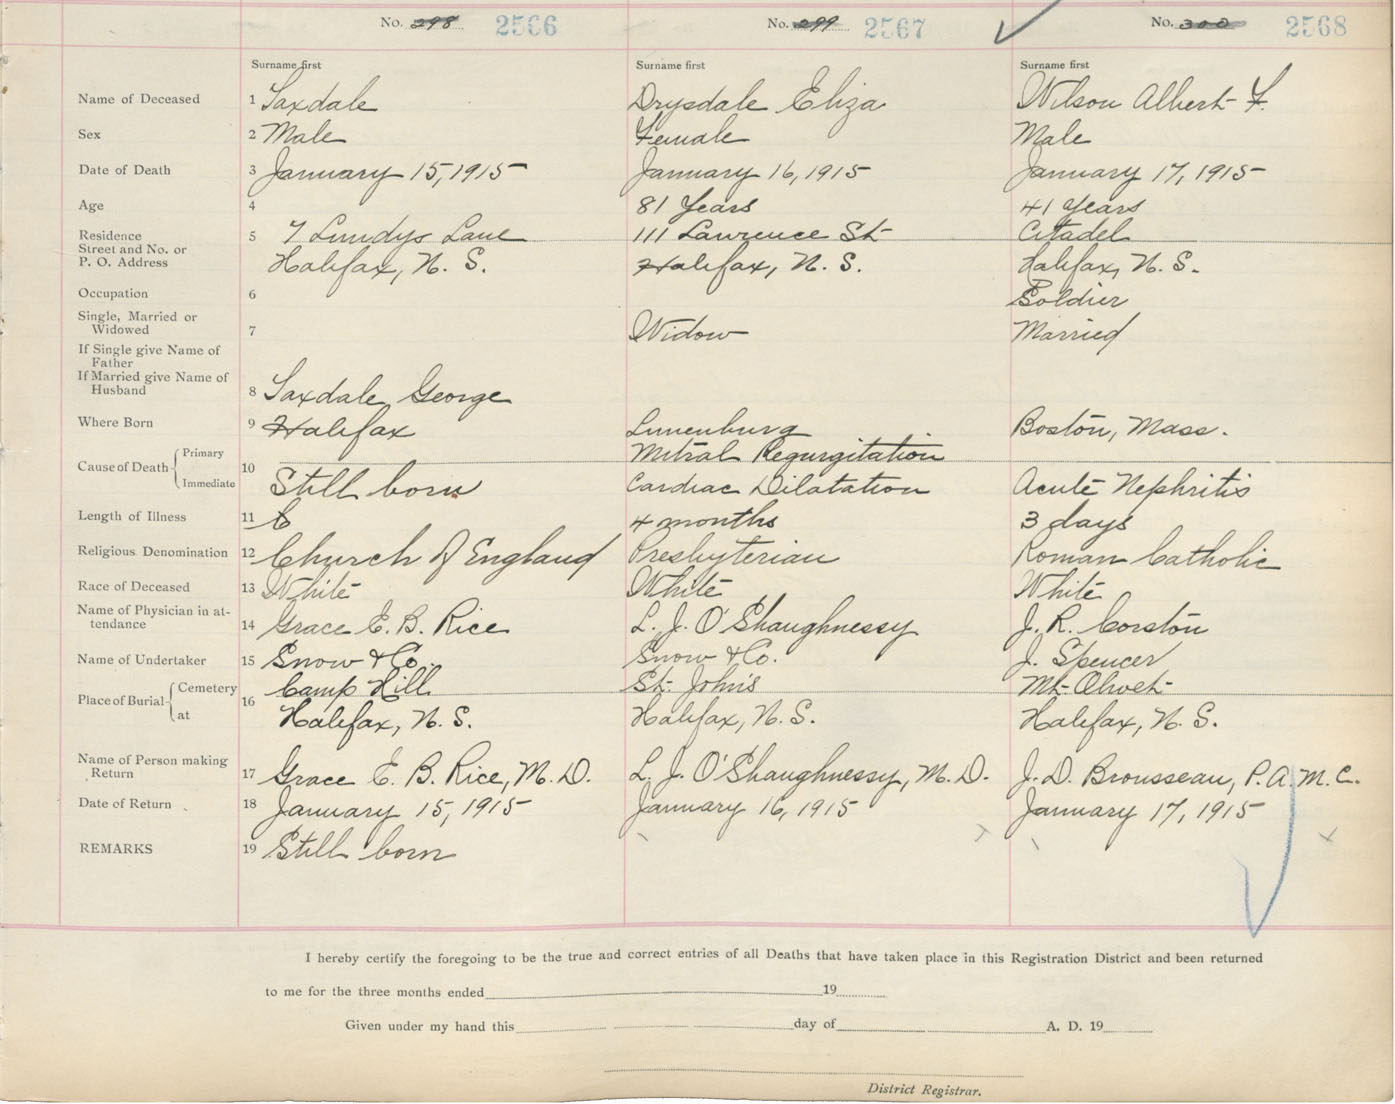 No. 298 2566 No. 299 2567 No. 300 2568
Surname first Surname first Surname first
Name of Deceased 1 Saxdale Drysdale Eliza Wilson Albert F.
Sex 2 Male Female Male
Date of Death 3 January 15, 1915 January 16, 1915 January 17, 1915
Age 4 81 Years 41 Years
Residence 5 7 Lundys Lane 111 Lawrence St Citadel
Street and No. or
P. O. Address Halifax, N. S. Halifax, N. S. Halifax, N. S.
Occupation 6 Soldier
Single, Married or
Widowed 7 Widow Married
If Single give Name of
Father
If Married give Name of
Husband 8 Saxdale George
Where Born 9 Halifax Lunenburg Boston, Mass.
Primary Mitral Regurgitation
Cause of Death 10
Immediate Still born Cardiac Dilatation Acute Nephritis
Length of Illness 11 4 months 3 days
Religious Denomination 12 Church of England Presbyterian Roman Catholic
Race of Deceased 13 White White White
Name of Physician in at-
tendance 14 Grace E. B. Rice L. J. O'Shaughnessy J. R. Corston
Name of Undertaker 15 Snow & Co. Snow & Co. J. Spencer
Cemetery Camp Hill St. John's Mt Olivet
Place of Burial 16
at Halifax, N. S. Halifax, N. S. Halifax, N. S.
Name of Person making
Return 17 Grace E. B. Rice, M. D. L. J. O'Shaughnessy, M. D. J. D. Brousseau, P. A. M. C.
Date of Return 18 January 15, 1915 January 16, 1915 January 17, 1915
REMARKS 19 Still born
I hereby certify the foregoing to be the true and correct entries of all Deaths that have taken place in this Registration District and been returned
to me for the three months ended 19
Given under my hand this day of A. D. 19
District Registrar.